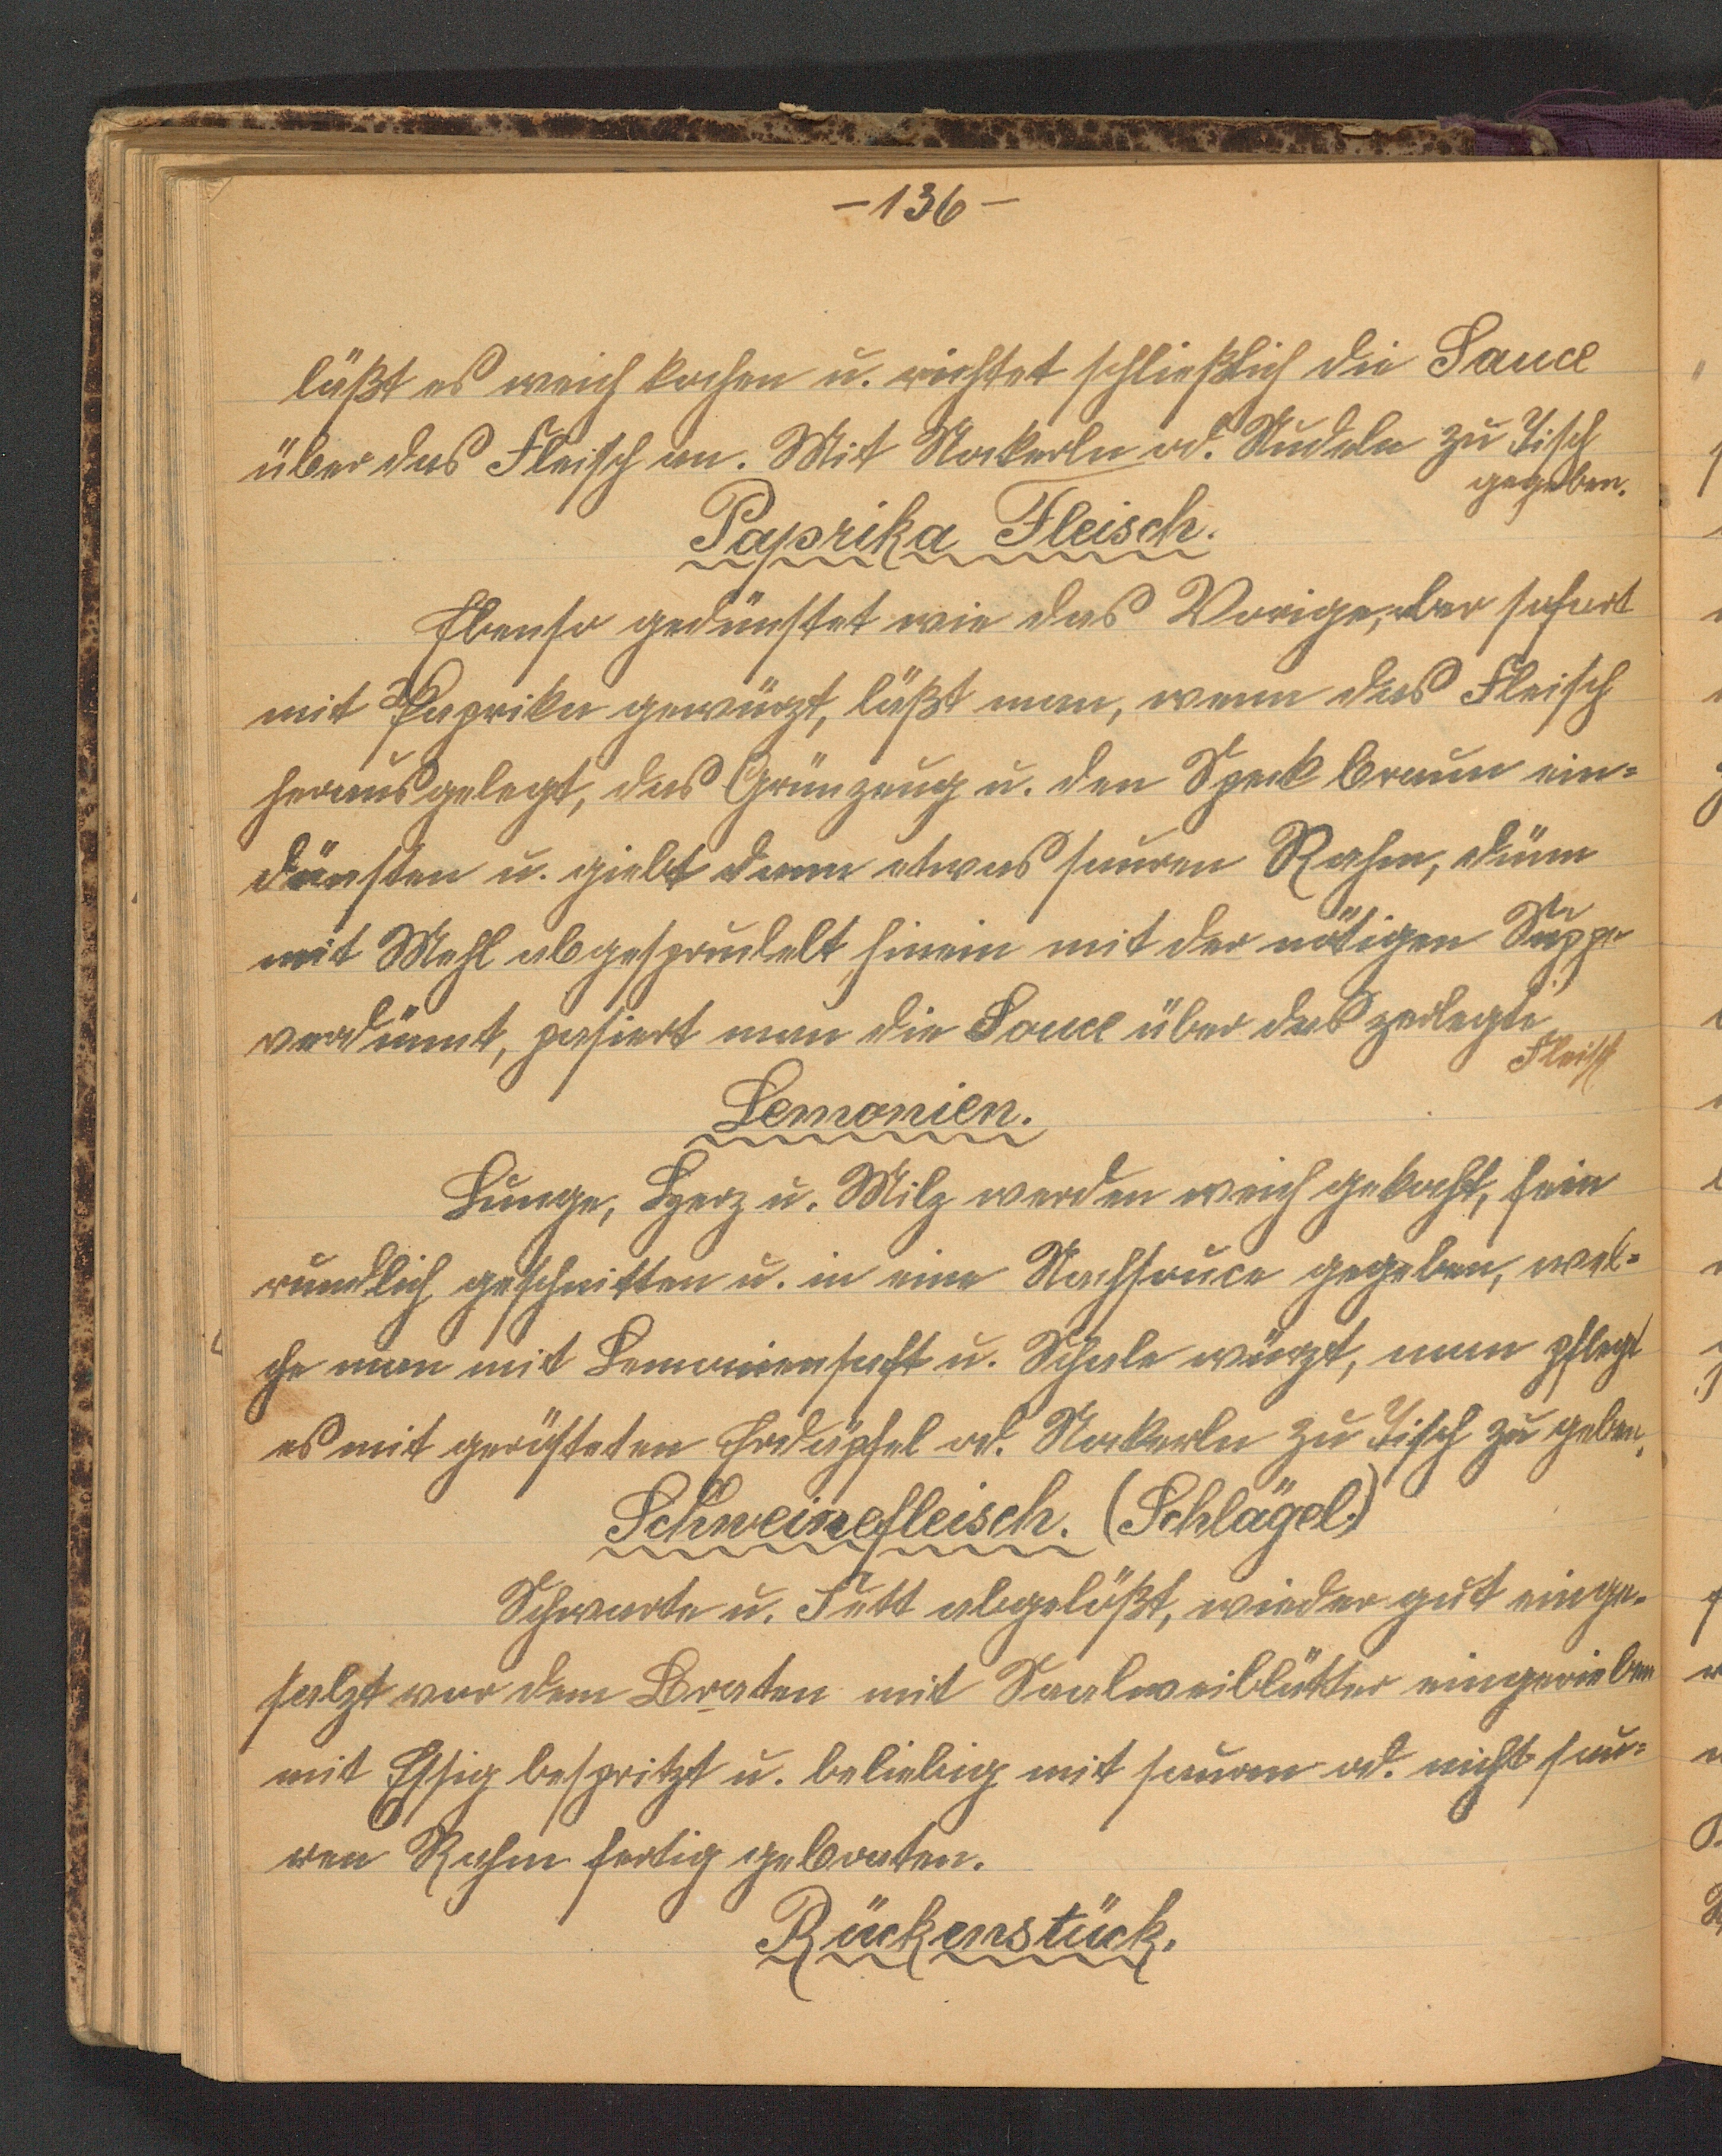 -136-
läßt es weich kochen u. richtet schließlich die Sauce
über das Fleisch an. Mit Nokerln od. Nudeln zu Tisch
gegeben.
Paprika Fleisch.
Ebenso gedünstet wie das Vorige, aber sofort
mit Paprika gewürzt, läßt man, wenn das Fleisch
herausgelegt, das Grünzeug u. den Speck braun ein=
dünsten u. giebt dann etwas sauren Rahm, dünn
mit Mehl abgesprudelt hinein mit der nötigen Suppe
verdünnt, pasiert man die Sauce über das zerlegte
Fleisch
Lemonien.
Lunge, Herz u. Milz werden weich gekocht, fein
nundlich geschnitten u. in eine Sauce gegeben, wel=
che man mit Lemoniensaft u. Schale würzt, man pflegt
es mit gerösteten Erdäpfel od. Nokerln zu Tisch zu geben.
Schweinefleisch. (Schlägel.)
Schwarte u. Fett abgelößt, wieder gut einge=
salzt vor dem Braten mit Saalweiblätter eingerieben
mit Essig bespritzt u. beliebig mit sauren od. nicht sau=
ren Rahm fertig gebraten.
Rückenstück.